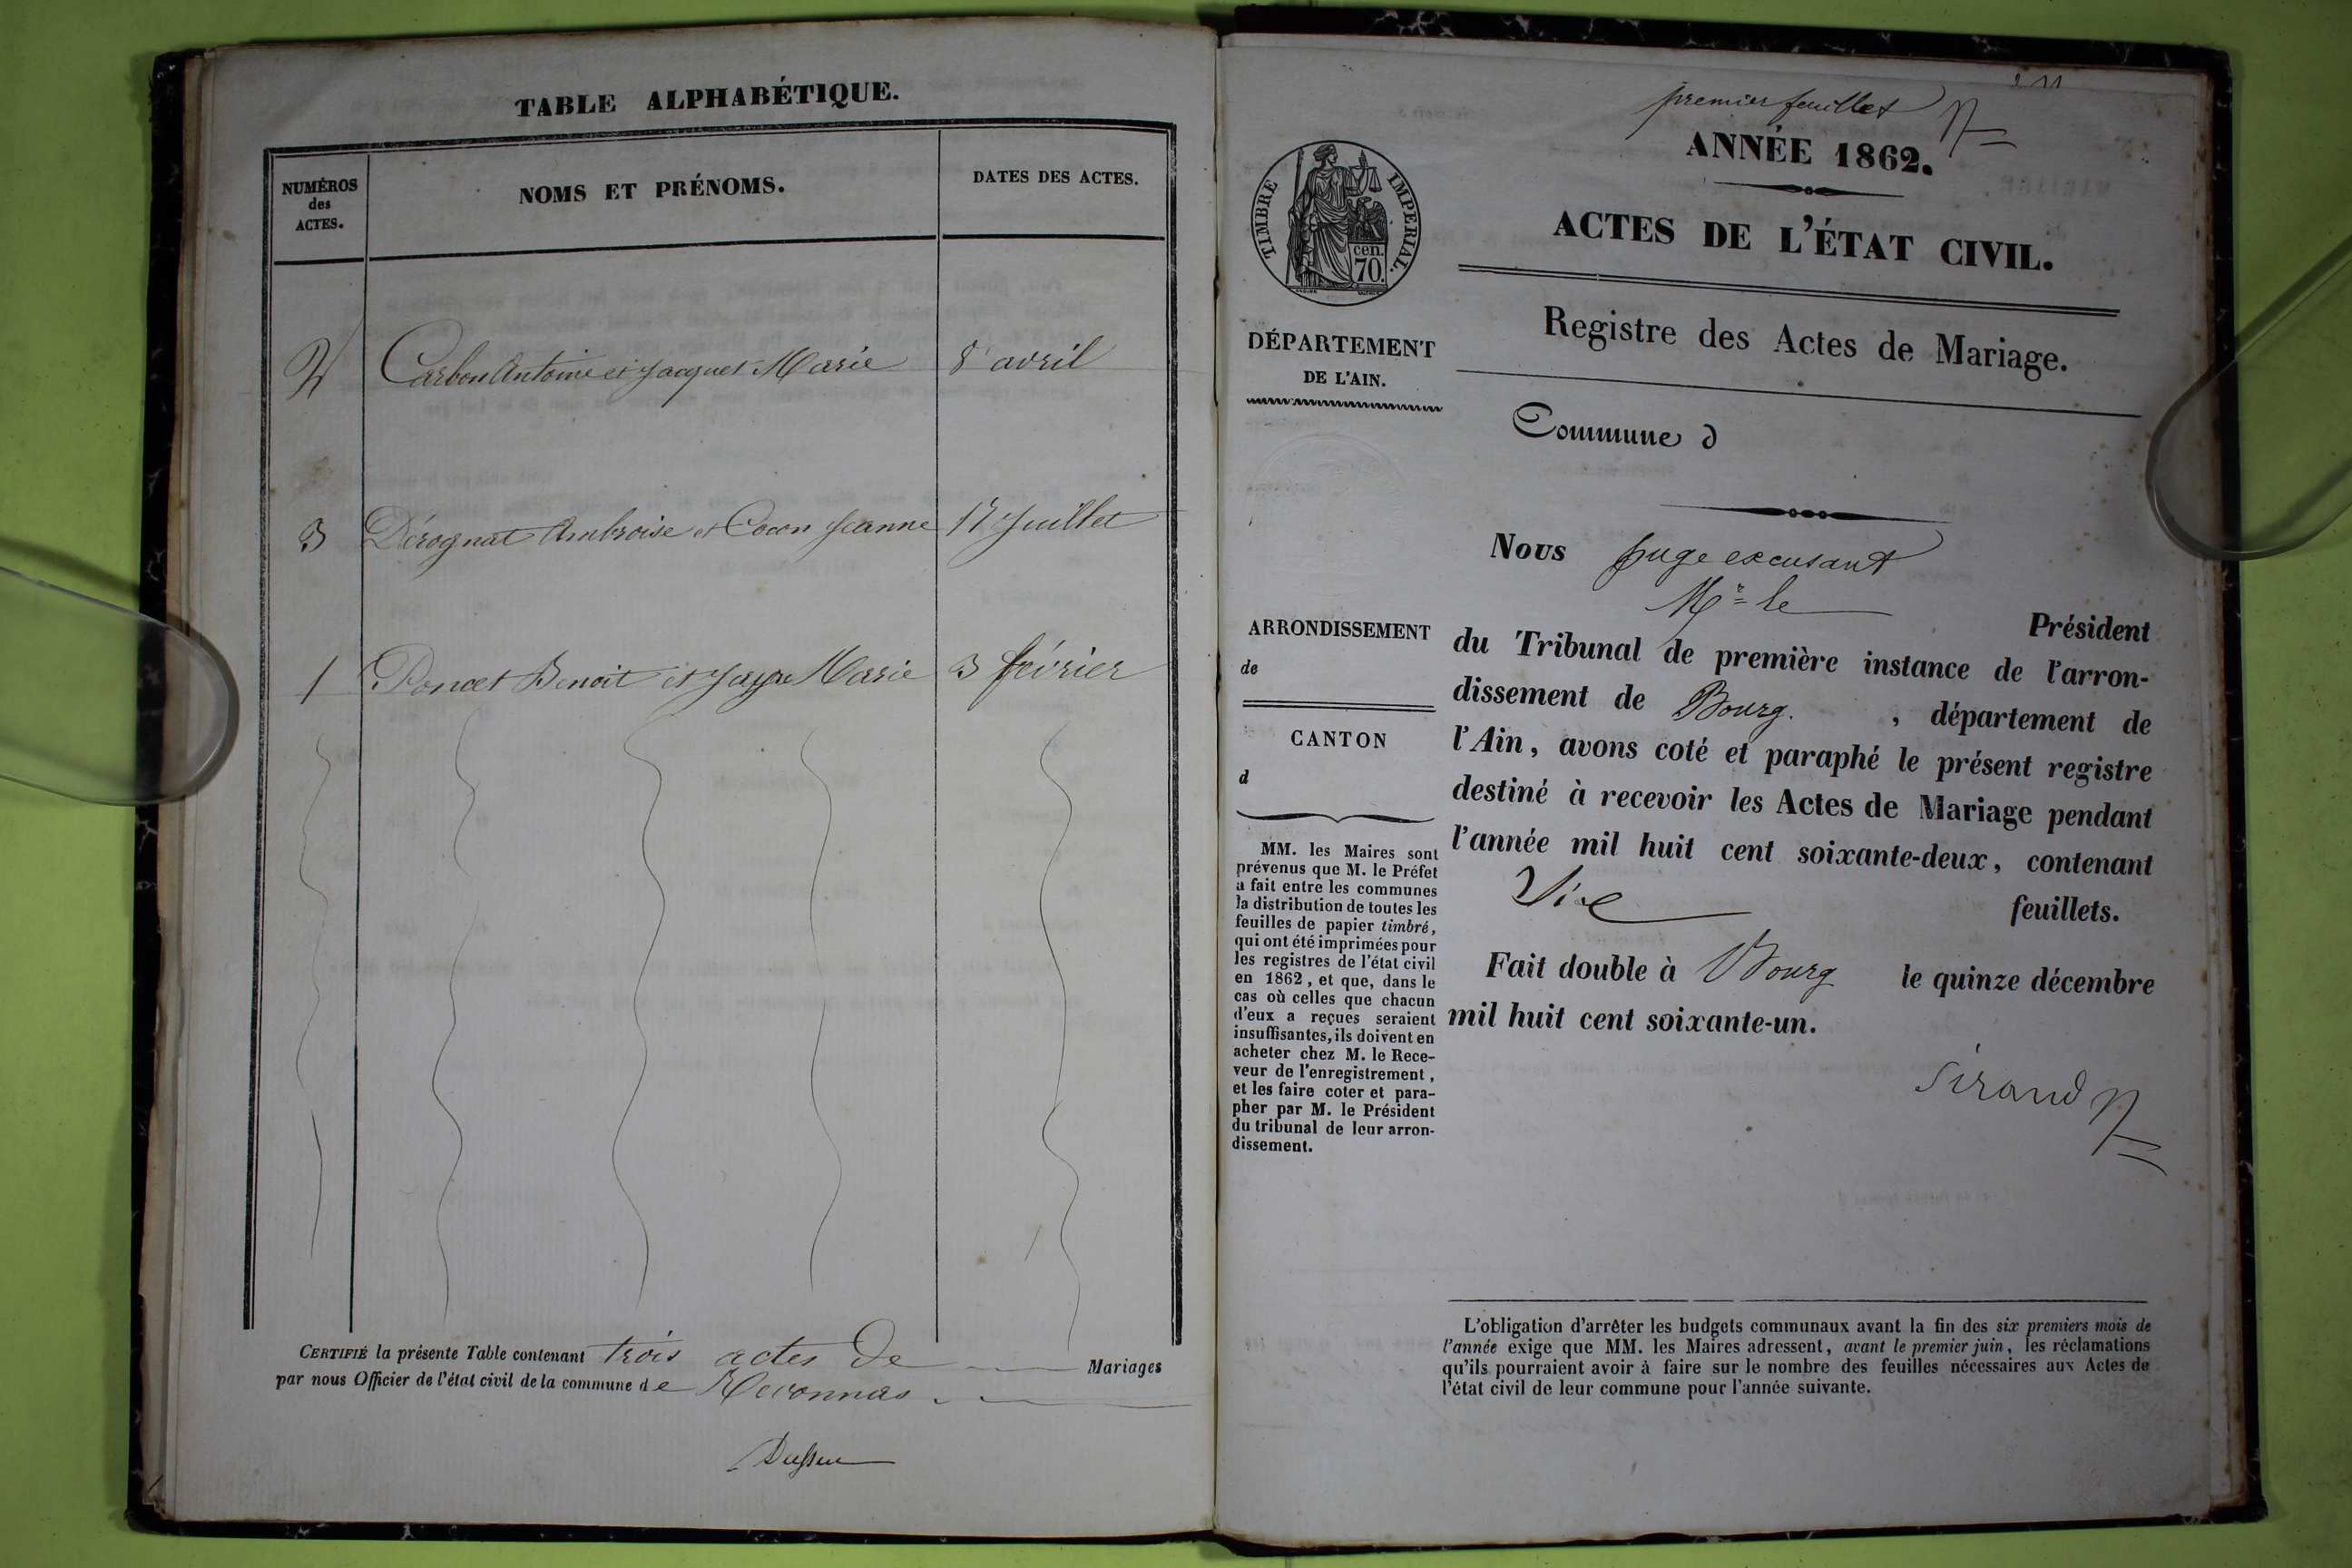 TABLE ALPHABÉTIQUE.
NUMÉROS
des
ACTES.
NOMS ET PRÉNOMS.
DATES DES ACTES.
2 Carbon Antoine et Jacquet Marie 8 avril
3 Dérognat Ambroise et Cocon Jeanne 17 Juillet
1 Poncet Benoit et Marie 3 février
CERTIFIÉ la présente Table contenant trois actes de Mariages
par nous Officier de l'état civil de la commune de Revonnas
premier feuillet
ANNÉE 1862.
TIMBRE IMPERIAL.
cen.
70.
ACTES DE L'ÉTAT CIVIL.
Registre des Actes de Mariage.
DÉPARTEMENT
DE L'AIN.
Commune d
Nous juge excusant
Mr le
Président
du Tribunal de première instance de l'arron-
dissement de Bourg. , département de
l'Ain, avons coté et paraphé le présent registre
destiné à recevoir les Actes de Mariage pendant
l'année mil huit cent soixante-deux, contenant
Six feuillets.
Fait double à Bourg le quinze décembre
mil huit cent soixante-un.
Sirand
ARRONDISSEMENT
de
CANTON
d
MM. les Maires sont
prévenus que M. le Préfet
a fait entre les communes
la distribution de toutes les
feuilles de papier timbré,
qui ont été imprimées pour
les registres de l'état civil
en 1862, et que, dans le
cas où celles que chacun
d'eux a reçues seraient
insuffisantes, ils doivent en
acheter chez M. le Rece-
veur de l'enregistrement,
et les faire coter et para-
pher par M. le Président
du tribunal de leur arron-
dissement.
L'obligation d'arrêter les budgets communaux avant la fin des six premiers mois de
l'année exige que MM. les Maires adressent, avant le premier juin, les réclamations
qu'ils pourraient avoir à faire sur le nombre des feuilles nécessaires aux Actes de
l'état civil de leur commune pour l'année suivante.